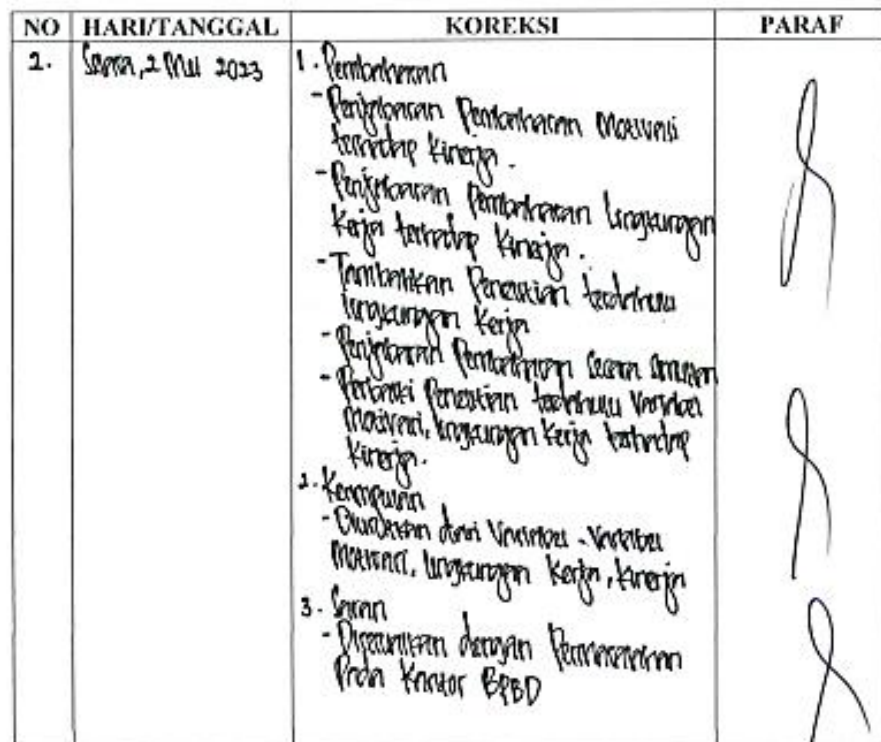 NO HARI/TANGGAL KOREKSI PARAF
2. Selasa, 2 Mei 2023
1. Pembahasan
- Penjabaran Pembahasan Motivasi
terhadap Kinerja.
- Penjabaran Pembahasan Lingkungan
Kerja terhadap Kinerja.
- Tambahkan Penelitian terdahulu
lingkungan Kerja
- Penjabaran Pembahasan Secara Simultan
- Perbaiki Penelitian terdahulu Variabel
Motivasi, lingkungan Kerja terhadap
Kinerja.
2. Kesimpulan
- Diuraikan dari Variabel-Variabel
Motivasi, lingkungan Kerja, Kinerja
3. Saran
- Disesuaikan dengan Permasalahan
Pada Kantor BPBD